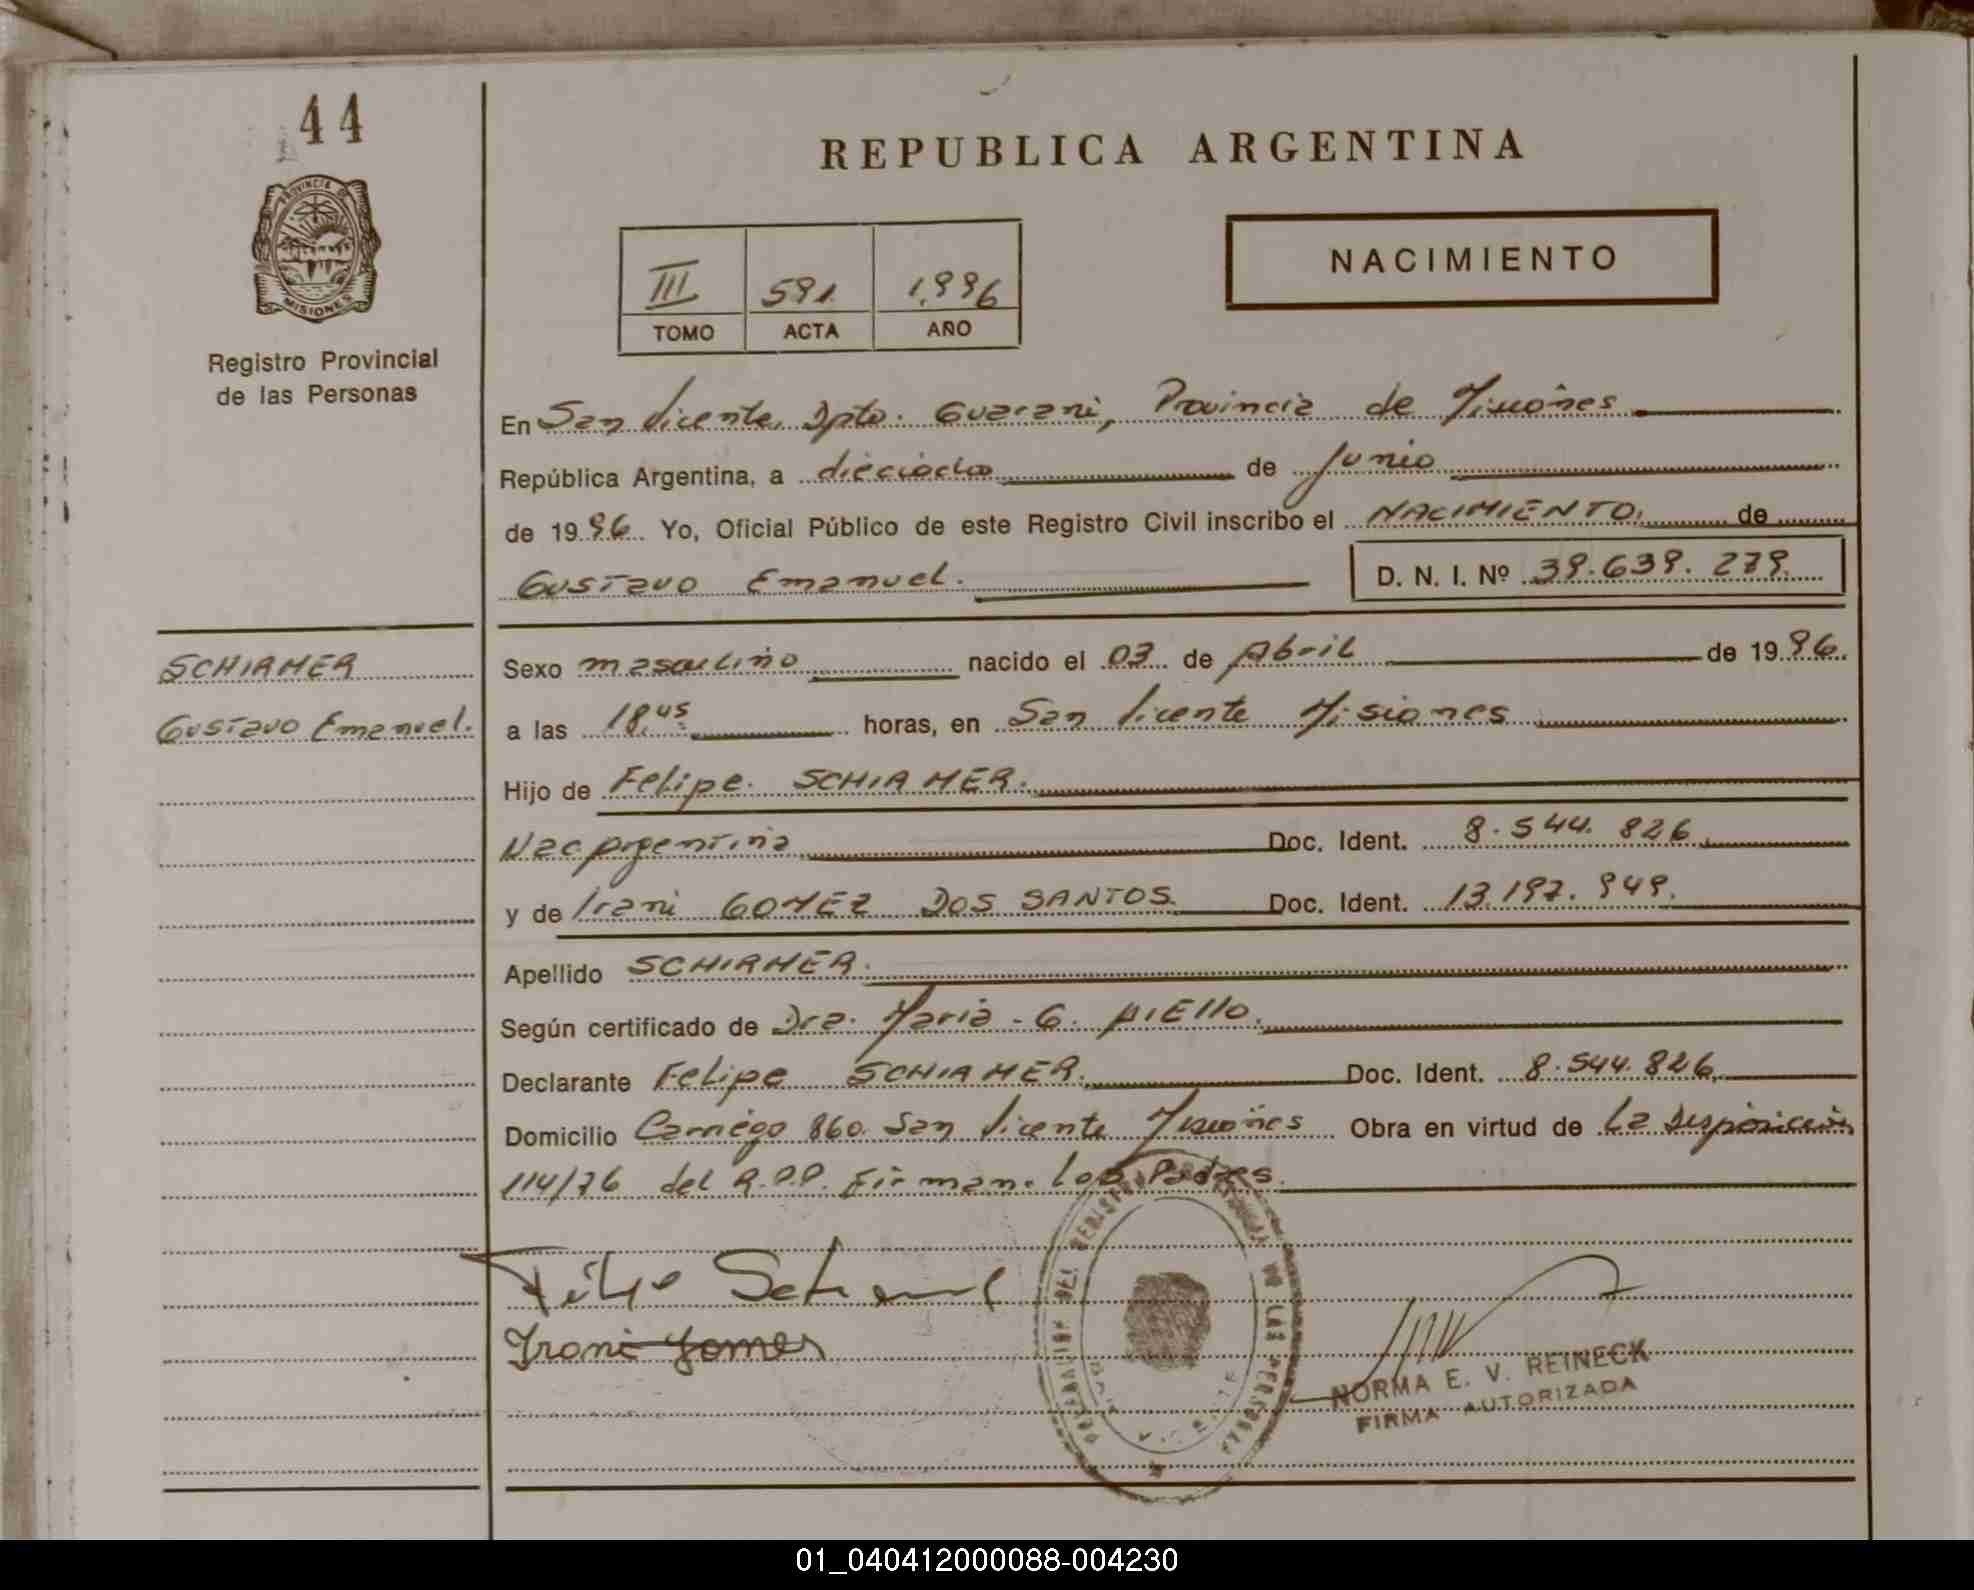 44
PROVINCIA DE
MISIONES
Registro Provincial
de las Personas
REPUBLICA ARGENTINA
III 591 1.996
TOMO ACTA AÑO
NACIMIENTO
En San Vicente, Dpto. Guarani, Provincia de Misiones
República Argentina, a dieciocho de Junio
de 1996 Yo, Oficial Público de este Registro Civil inscribo el NACIMIENTO. de
Gustavo Emanuel. D. N. I. Nº 39.639.279.
SCHIRMER
Gustavo Emanuel.
Sexo masculino nacido el 03 de Abril de 1996.
a las 18,45 horas, en San Vicente Misiones
Hijo de Felipe. SCHIRMER.
Nac. Argentina Doc. Ident. 8.544.826.
y de Irani GOMEZ DOS SANTOS. Doc. Ident. 13.197.949.
Apellido SCHIRMER.
Según certificado de Dra. Maria-G. AIELLO.
Declarante Felipe SCHIRMER. Doc. Ident. 8.544.826.
Domicilio Carriego 860. San Vicente Misiones Obra en virtud de La Disposición
114/76 del R.P.P. Firman. Los Padres.
Irani Gomes
DELEGACION DEL REGISTRO PROVINCIAL DE LAS PERSONAS
NORMA E. V. REINECK
FIRMA AUTORIZADA
01_040412000088-004230